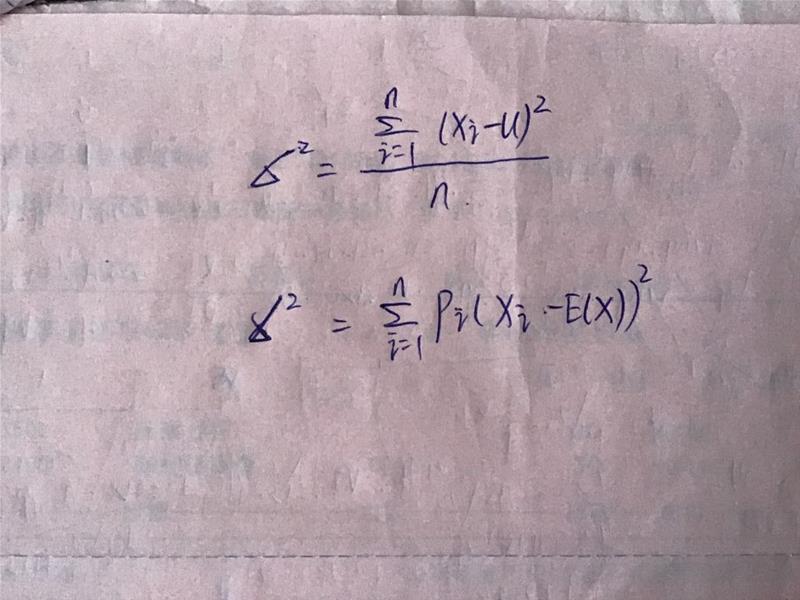 δ² = \frac{\sum_{i=1}^{n} (x_i - u)^2}{n}
δ² = \sum_{i=1}^{n} P_i (X_i - E(X))^2